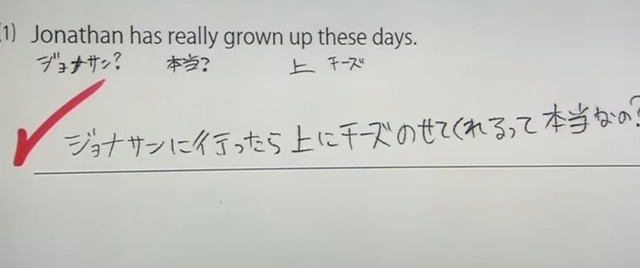 (1) Jonathan has really grown up these days.
ジョナサン? 本当? 上 チーズ
ジョナサンに行ったら上にチーズのせてくれるって本当なの?